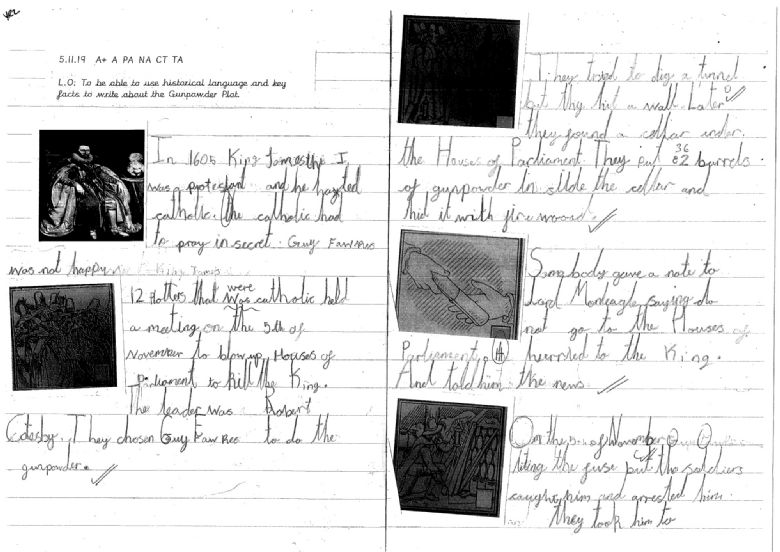 5.11.19 A+ A PA NA CT TA
L.O: To be able to use historical language and key
facts to write about the Gunpowder Plot.
In 1605 King Jamesthe I
was a protestant and he hayted
catholic. The catholic had
to pray in secret. Guy Fawkes
was not happy
12 Plotters that were was catholic held
a meeting on the 5th of
November to blow up Houses of
Parliament to kill the King.
The leader was Robert
Catesby. They chosen Guy Fawkes to do the
gunpowder.
They tried to dig a tunnel
but thy hit a wall. Later
they found a cellar under
the Houses of Parliament. They put 36 barrels
of gunpowder in side the cellar and
hid it with fire wood.
Somebody gave a note to
Lord Monteagle saying do
not go to the Houses of
Parliament. H hurried to the King.
And told him the news
On the 5 of November
liting the fuse but the soldiers
caught him and arrested him.
they took him to